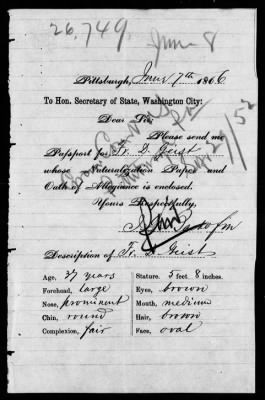 26,749
June 8
Pittsburgh, June 7th 1866
To Hon. Secretary of State, Washington City:
Dear Sir,
Please send me
Passport for Fr. D. Geist
whose Naturalization Paper and
Oath of Allegiance is enclosed.
Yours Respectfully,
Description of Fr. D. Geist
Age, 37 years Stature. 5 feet 8 inches.
Forehead, large Eyes, brown
Nose, prominent Mouth, medium
Chin, round Hair, brown
Complexion, fair Face, oval